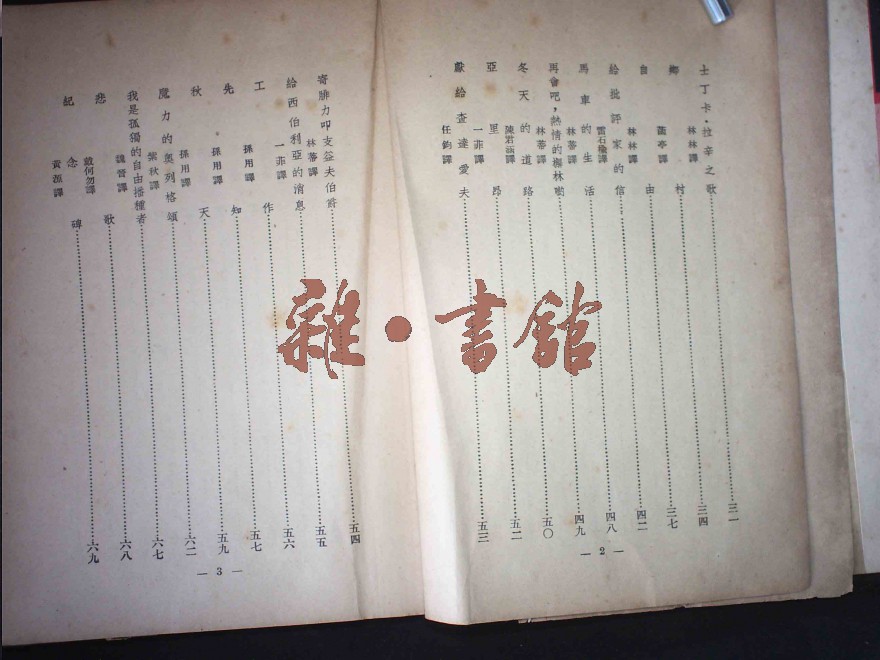 士丁卡·拉辛之歌……三一
林林譯
鄉村……三四
亭譯
自由……三七
林林譯
給批評家的信……四二
雷石榆譯
馬車的生活……四八
林蒂譯
再會吧，熱情的樹林喲……四九
林蒂譯
冬天的道路……五〇
陳君涵譯
亞里昂……五二
一菲譯
獻給查達愛夫……五三
任鈞譯
— 2 —
寄腓力叩支益夫伯爵……五四
林蒂譯
給西伯利亞的消息……五五
一菲譯
工作……五六
孫用譯
先知……五七
孫用譯
秋天……五九
孫用譯
魔力的奧列格頌……六二
紫秋譯
我是孤獨的自由播種者……六七
魏晉譯
悲歌……六八
戴何勿譯
紀念碑……六九
黃源譯
— 3 —
雜·書館